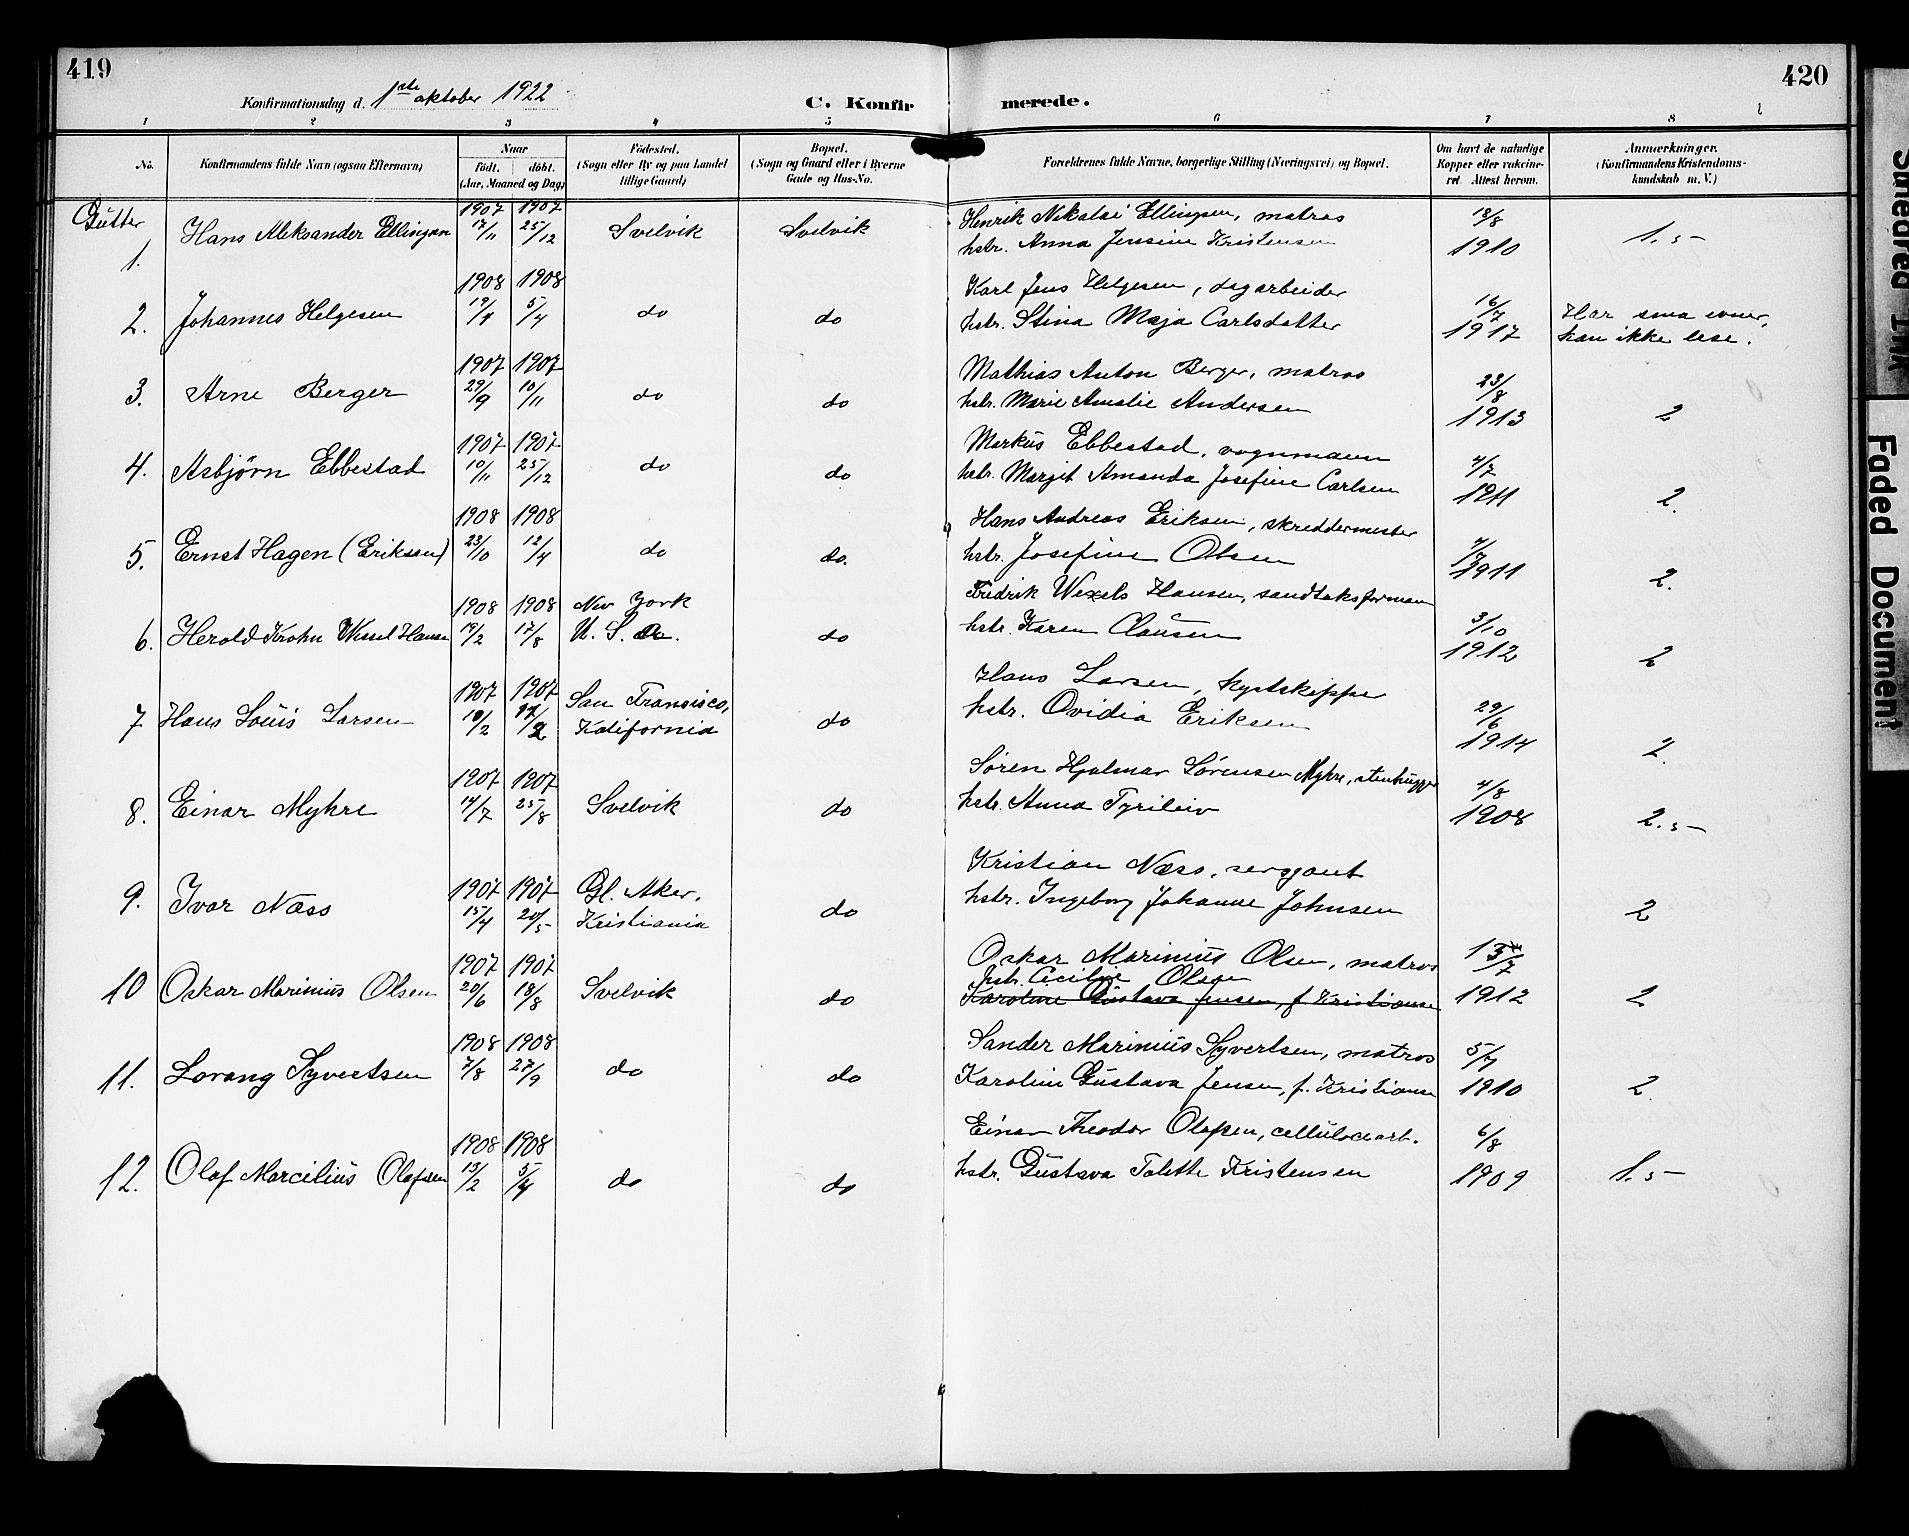 419
420
Konfirmationsdag d. 1ste oktober 1922
C. Konfirmerede.
1 2 3 4 5 6 7 8
No.
Konfirmandens fulde Navn (ogsaa Efternavn)
Naar
født. døbt.
(Aar, Maaned og Dag)
Fødested.
(Sogn eller By og paa Landet
tillige Gaard)
Bopæl.
(Sogn og Gaard eller i Byerne
Gade og Hus-No.
Forældrenes fulde Navne, borgerlige Stilling (Næringsvei) og Bopæl.
Om havt de naturlige
Kopper eller vakcine-
ret Attest herom.
Anmærkninger.
(Konfirmandens Kristendoms-
kundskab m. V.)
Gutter
1907 1907 Henrik Nikolai Ellingsen, matros 18/8
1. Hans Aleksander Ellingsen 17/11 25/12 Svelvik Svelvik hstr. Anna Jensine Kristensen 1910 1.5
1908 1908 Karl Jens Helgesen, dagarbeider 16/7
2. Johannes Helgesen 19/1 5/4 do do hstr. Stina Maja Carlsdatter 1917 Har smaa evner,
kan ikke lese.
1907 1907 Mathias Anton Berger, matros 23/8
3. Arne Berger 29/9 10/11 do do hstr. Marie Amalie Andersen 1913 2
1907 1907 Markus Ebbestad, vognmann 4/7
4. Asbjørn Ebbestad 10/11 25/12 do do hstr. Margit Amanda Josefine Carlsen 1911 2.
1908 1908 Hans Andreas Eriksen, skreddermester 4/7
5. Ernst Hagen (Eriksen) 23/10 12/4 do do. hstr. Josefine Olsen 1911 2.
1908 1908 New York Fredrik Wexels Hansen, sandtaksformann 3/10
6. Herold Krohn Wessel Hansen 19/2 17/8 U. S. A. do hstr. Karen Clausen 1912 2
1907 1907 San Fransisco, Hans Larsen, kystskipper 29/6
7 Hans Louis Larsen 10/2 17/2 Kalifornia do hstr. Ovidia Eriksen 1914 2.
1907 1907 Søren Hjalmar Sørensen Myhre, stenhugger 4/8
8. Einar Myhre 14/7 25/8 Svelvik do hstr. Anna Tyrileiv 1908 2.5
1907 1907 Gl. Aker, Kristian Næss, serggant
9. Ivar Næss 15/4 20/5 Kristiania do hstr. Ingeborg Johanne Johnsen 2
1907 1907 Oskar Marinius Olsen, matros 13/7
hstr. Cecilie Olsen
10 Oskar Marinius Olsen 20/6 18/8 Svelvik do Karoline Gustava Jensen, f. Kristiansen 1912 2
1908 1908 Sander Marinius Syvertsen, matros 5/7
11. Lorang Syvertsen 7/8 27/9 do do Karoline Gustava Jensen, f. Kristiansen 1910 2
1908 1908 Einar Theodor Olafsen, cellulosearb. 6/8
12. Olaf Marcilius Olafsen 13/2 5/4 do do hstr. Gustava Talette Kristensen 1909 1.5
Smeared Ink
Faded Document